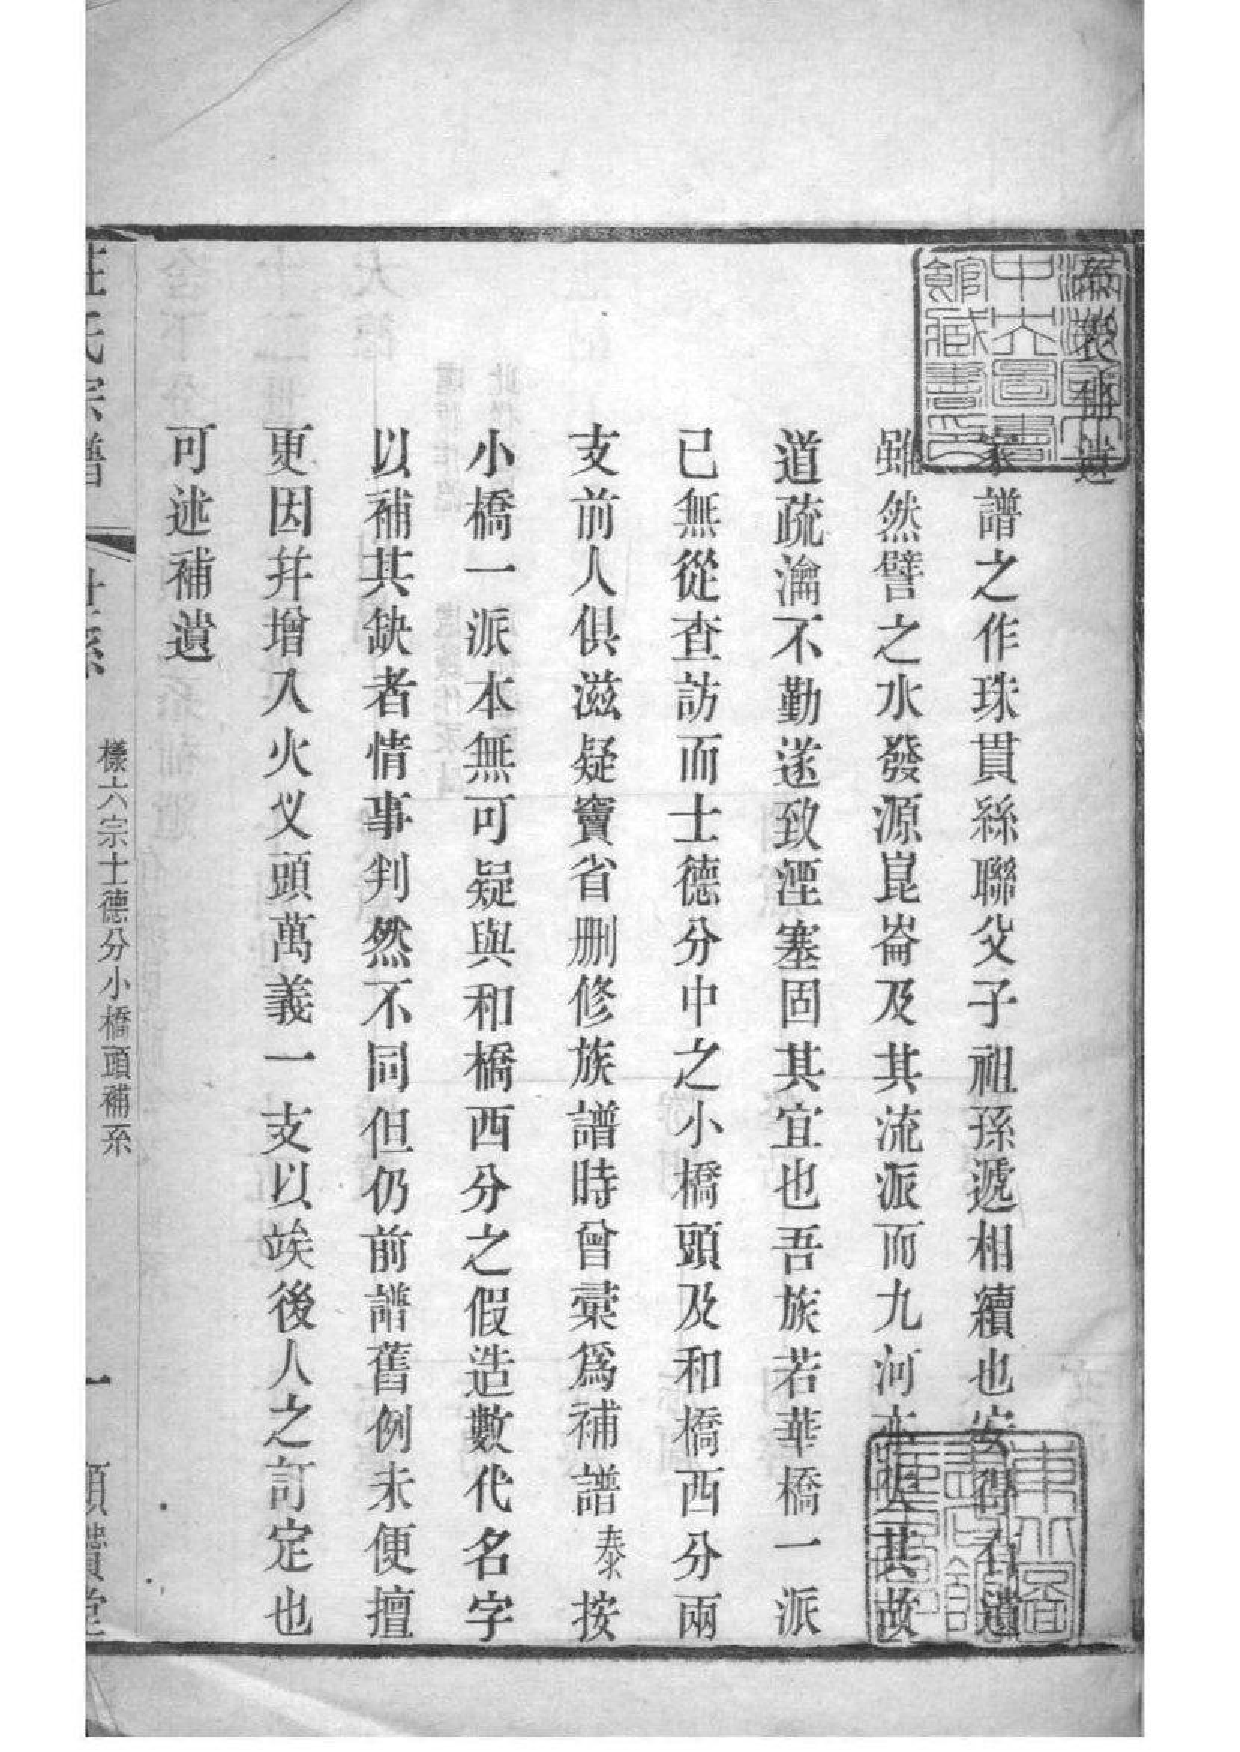 系表補遺
家譜之作珠貫絲聯父子祖孫遞相續也安得有遺
雖然譬之水發源崑崙及其流派而九河亦失其故
道疏瀹不勤遂致湮塞固其宜也吾族若華橋一派
已無從查訪而士德分中之小橋頭及和橋西分兩
支前人俱滋疑竇省刪修族譜時曾彙爲補譜泰按
小橋一派本無可疑與和橋西分之假造數代名字
以補其缺者情事判然不同但仍前譜舊例未便擅
更因幷增入火义頭萬義一支以竢後人之訂定也
可述補遺
汪氏宗譜
世系
樣六宗士德分小橋頭補系
一
國立中央圖書館藏書